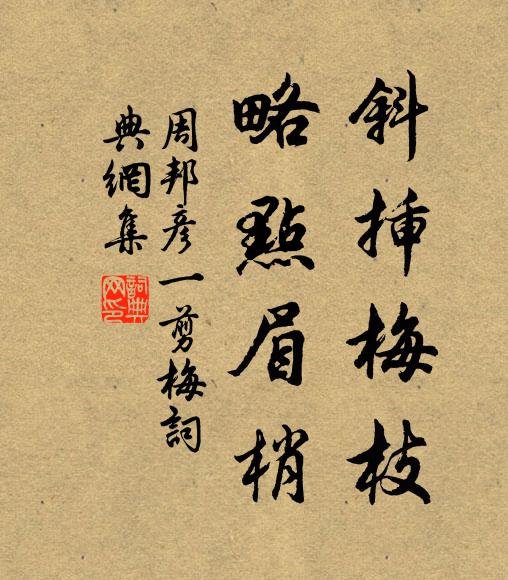 斜插梅枝
略點眉梢
周邦彥一剪梅詞
典網集
詞典網印